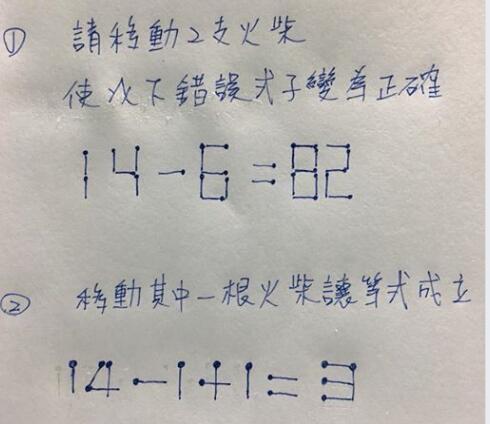 ① 請移動2支火柴
使以下錯誤式子變為正確
14-6=82
② 移動其中一根火柴讓等式成立
14-1+1=3